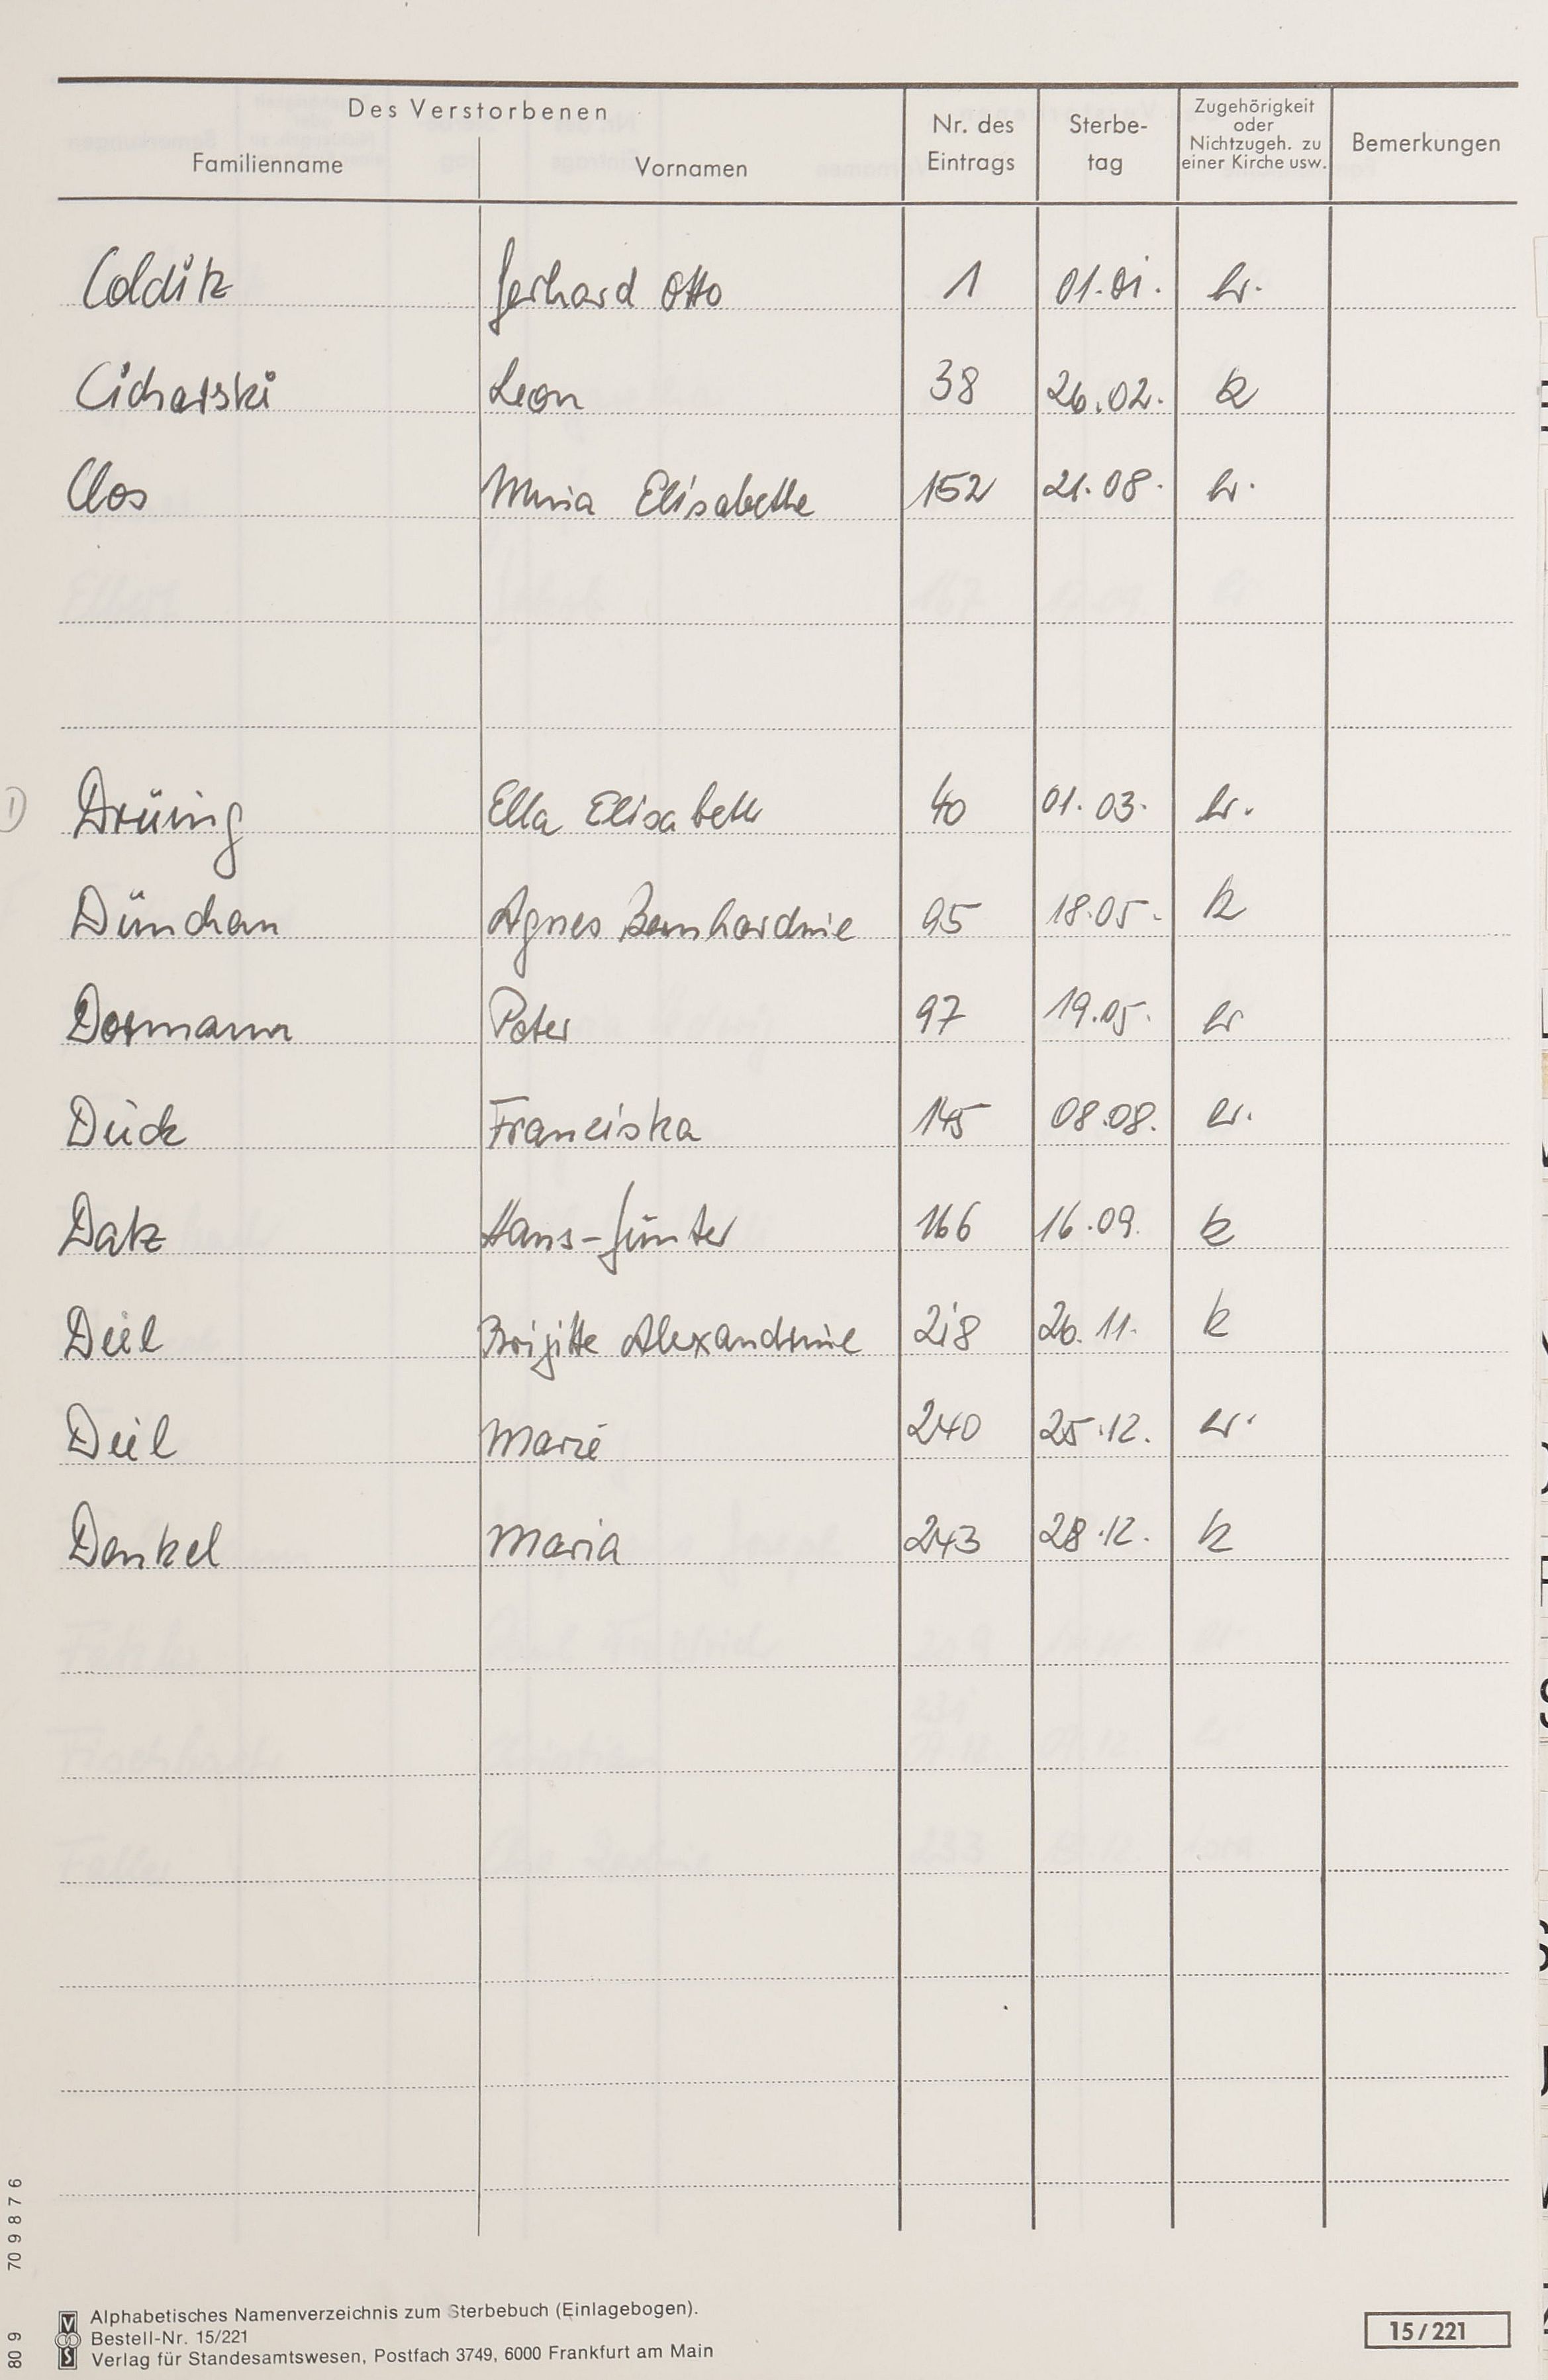 Des Verstorbenen
Familienname Vornamen Nr. des Eintrags Sterbe-tag Zugehörigkeit oder Nichtzugeh. zu einer Kirche usw. Bemerkungen
Colditz Gerhard Otto 1 01.01. ev.
Cicharski Leon 38 26.02. k
Clos Maria Elisabetha 152 21.08. ev.
Drüing Ella Elisabeth 40 01.03. ev.
Dünchen Agnes Bernhardine 95 18.05. k
Dormann Peter 97 19.05. ev
Dück Franziska 145 08.08. ev.
Datz Hans-Günter 166 16.09. k
Deil Brigitte Alexandrine 218 26.11. k
Deil Marie 240 25.12. ev.
Denkel Maria 243 28.12. k
Alphabetisches Namenverzeichnis zum Sterbebuch (Einlagebogen).
Bestell-Nr. 15/221
Verlag für Standesamtswesen, Postfach 3749, 6000 Frankfurt am Main
15/221
809 709876